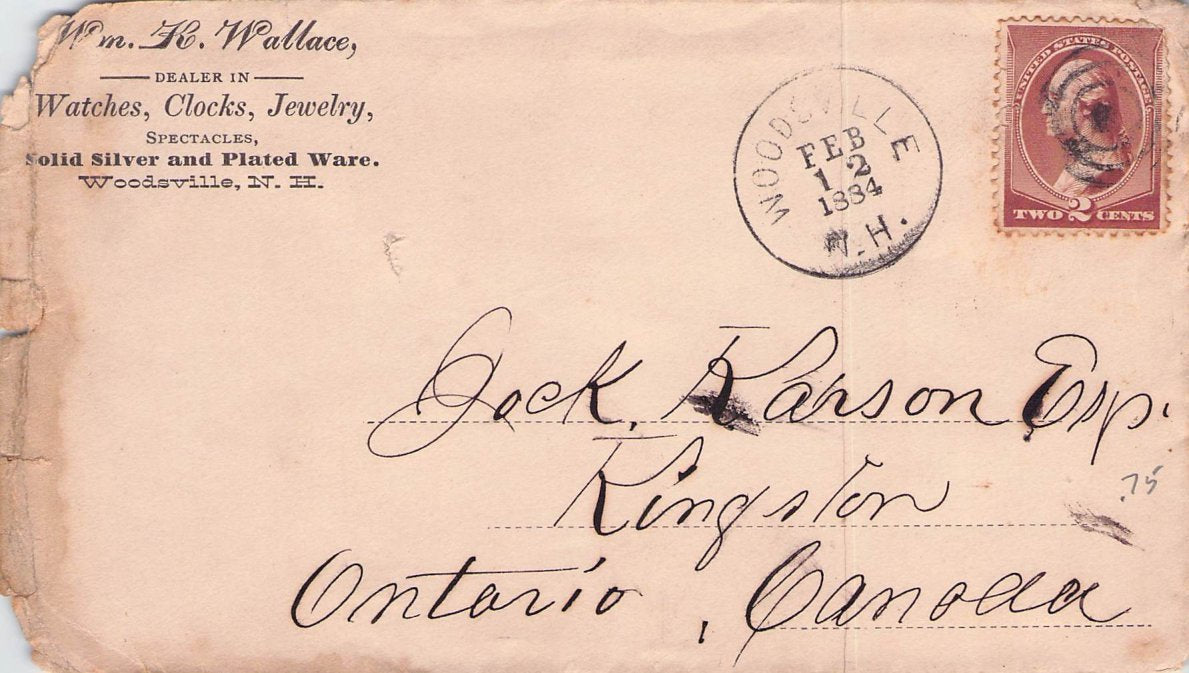 Wm. K. Wallace,
DEALER IN
Watches, Clocks, Jewelry,
SPECTACLES,
Solid Silver and Plated Ware.
Woodsville, N. H.
WOODSVILLE
FEB
12
1884
N.H.
UNITED STATES POSTAGE
TWO 2 CENTS
Jack Karson Esq.
Kingston
.75
Ontario, Canada